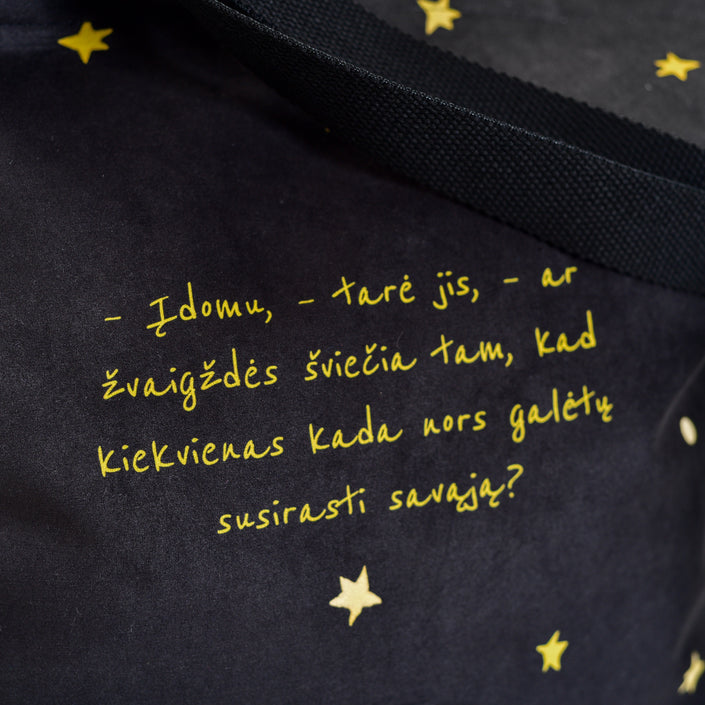 - Įdomu, - tarė jis, - ar
žvaigždės šviečia tam, kad
kiekvienas kada nors galėtų
susirasti savąją?